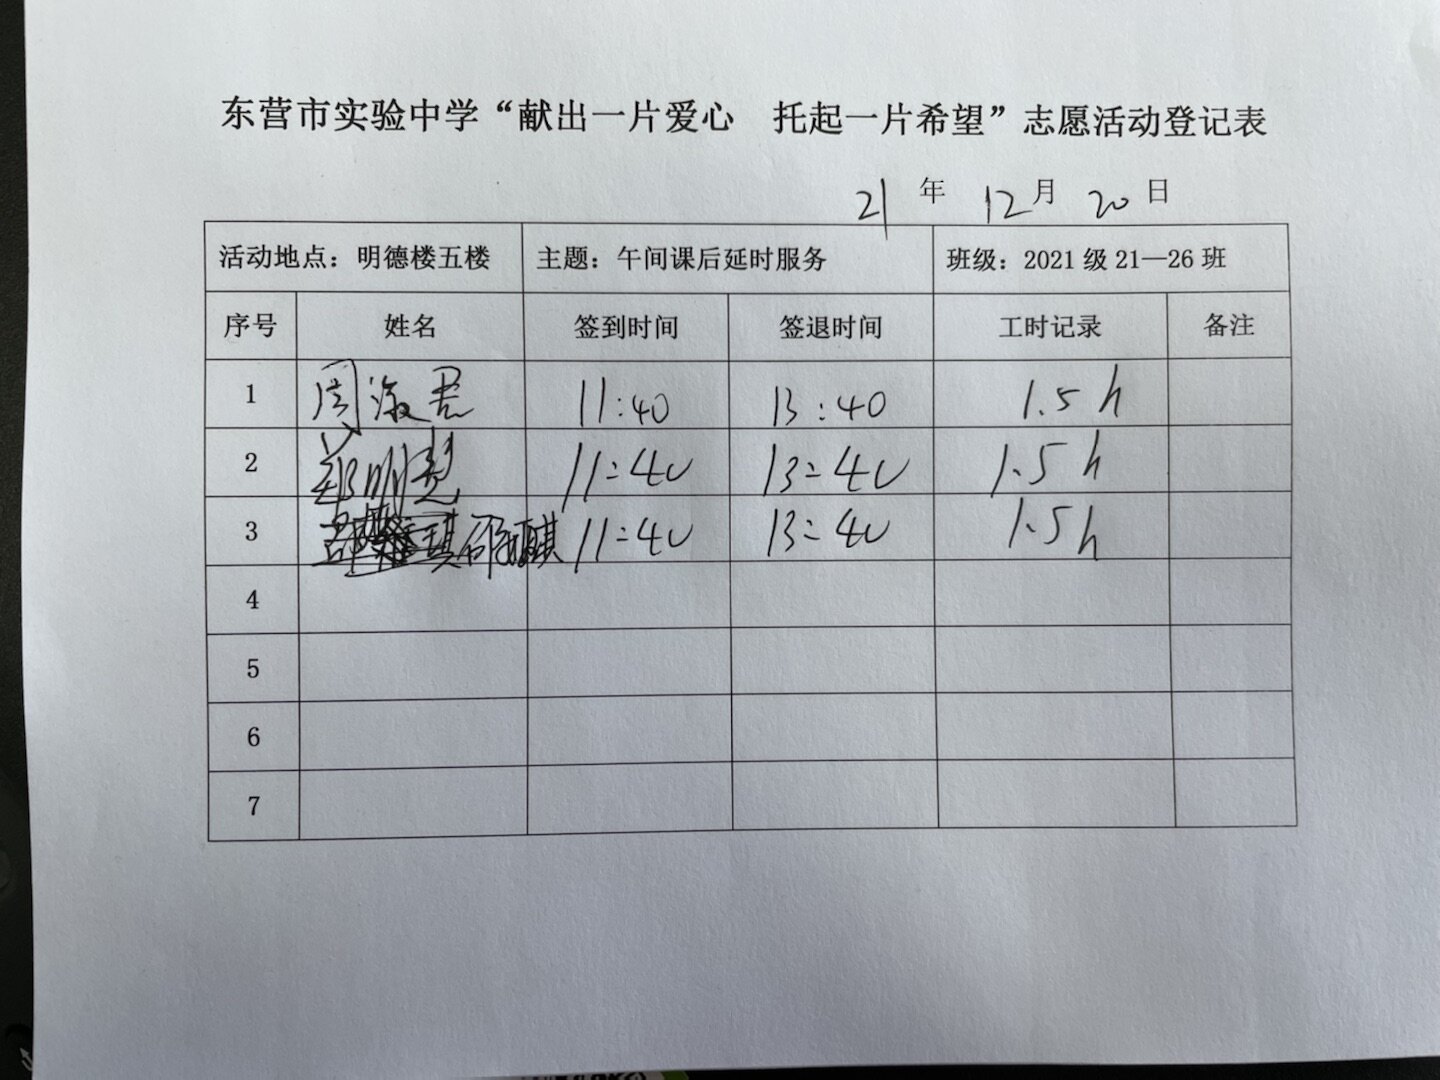 东营市实验中学“献出一片爱心 托起一片希望”志愿活动登记表
21年12月20日
活动地点：明德楼五楼 主题：午间课后延时服务 班级：2021级21—26班
序号 姓名 签到时间 签退时间 工时记录 备注
1 周淑君 11:40 13:40 1.5h
2 郑明慧 11:40 13:40 1.5h
3 11:40 13:40 1.5h
4
5
6
7